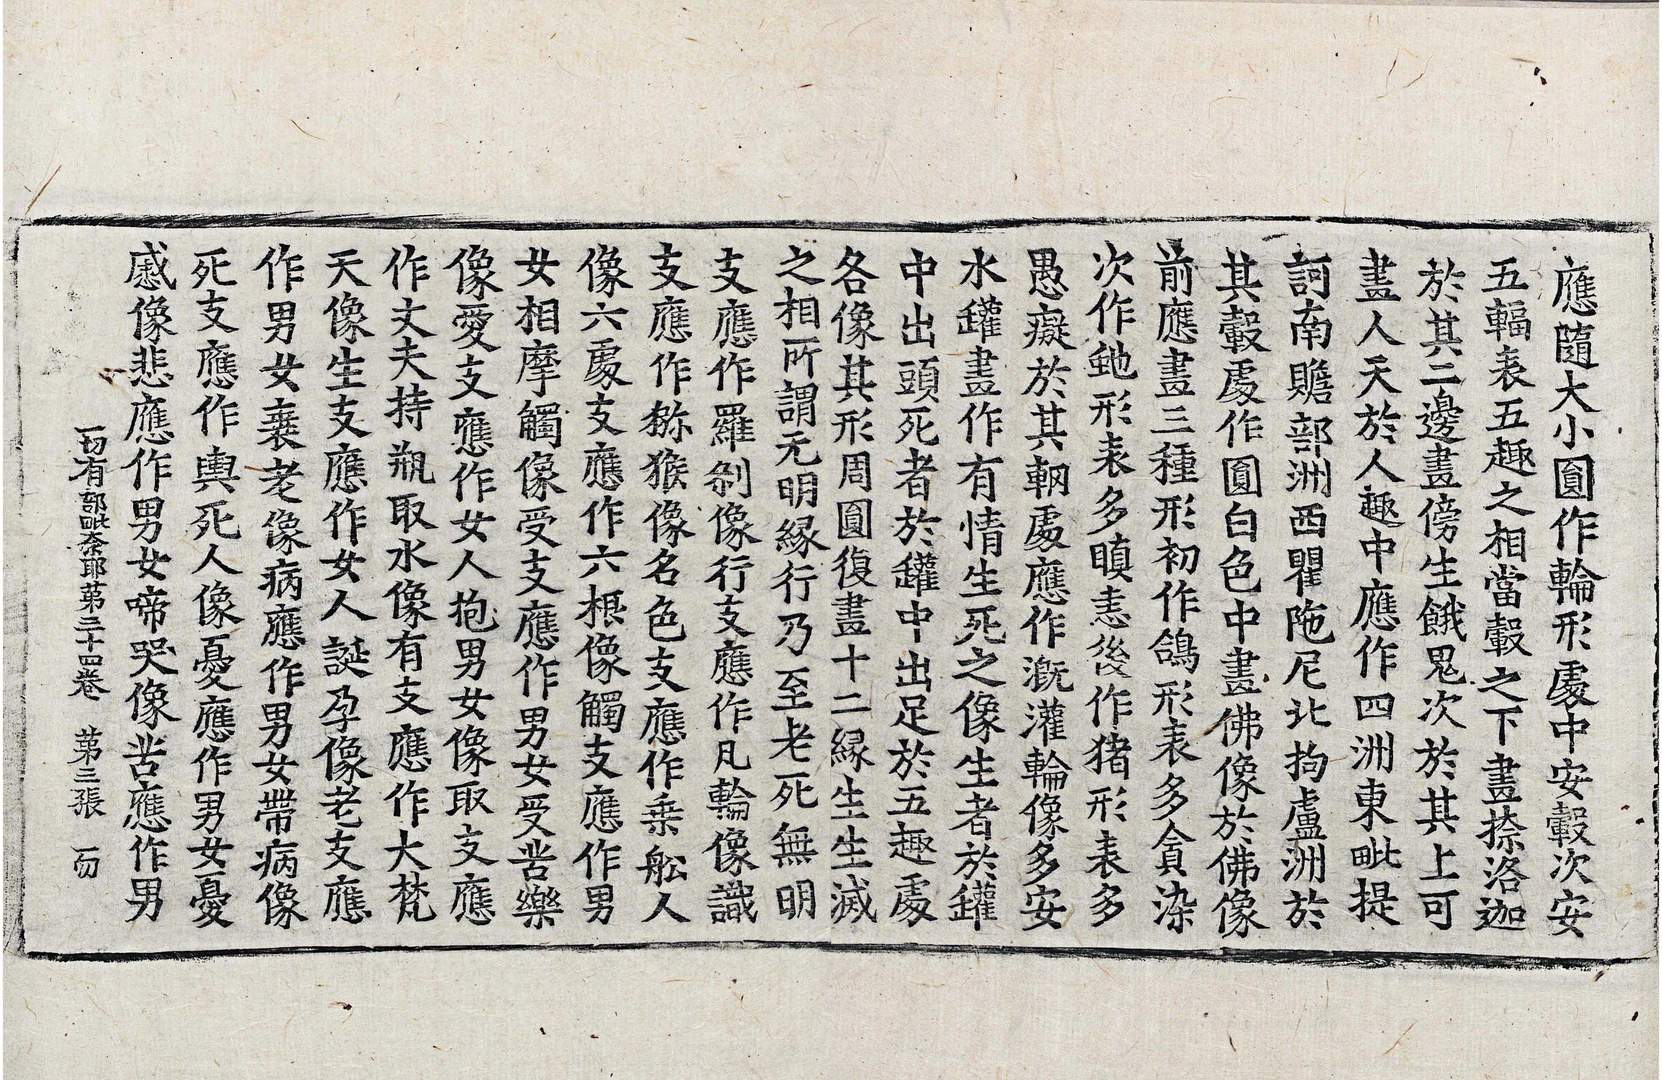 應隨大小圓作輪形處中安轂次安
五輻表五趣之相當轂之下畫捺洛迦
於其二邊畫傍生餓鬼次於其上可
畫人天於人趣中應作四洲東毗提
訶南贍部洲西瞿陁尼北拘盧洲於
其轂處作圓白色中畫佛像於佛像
前應畫三種形初作鴿形表多貪染
次作虵形表多瞋恚後作猪形表多
愚癡於其輞處應作溉灌輪像多安
水罐畫作有情生死之像生者於罐
中出頭死者於罐中出足於五趣處
各像其形周圓復畫十二緣生生滅
之相所謂无明緣行乃至老死無明
支應作羅剎像行支應作凡輪像識
支應作猕猴像名色支應作乘舩人
像六處支應作六根像觸支應作男
女相摩觸像受支應作男女受苦樂
像愛支應作女人抱男女像取支應
作丈夫持瓶取水像有支應作大梵
天像生支應作女人誕孕像老支應
作男女衰老像病應作男女帶病像
死支應作輿死人像憂應作男女憂
慼像悲應作男女啼哭像苦應作男
一切有部毗奈耶第三十四卷 第三張 一切